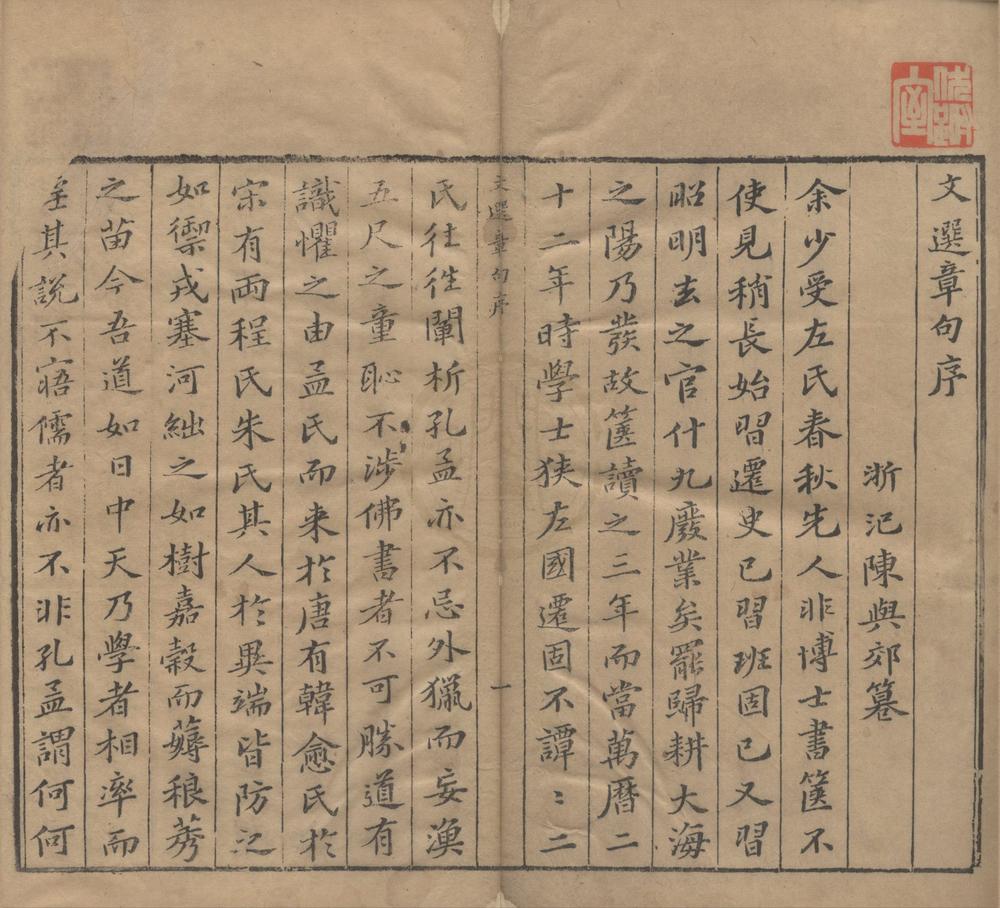 文選章句序
浙汜陳與郊纂
余少受左氏春秋先人非博士書篋不
使見稍長始習遷史已習班固已又習
昭明去之官什九廢業矣罷歸耕大海
之陽乃發故篋讀之三年而當萬曆二
十二年時學士狹左國遷固不譚譚二
文選章句序
一
氏往往闡析孔孟亦不忌外獵而妄漁
五尺之童恥不涉佛書者不可勝道有
識懼之由孟氏而来於唐有韓愈氏於
宋有兩程氏朱氏其人於異端皆防之
如禦戎塞河絀之如樹嘉穀而薅稂莠
之苗今吾道如日中天乃學者相率而
其說不寤儒者亦不非孔孟謂何何